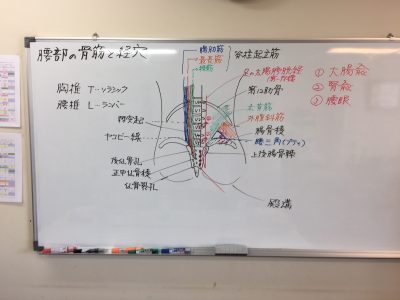 腰部の骨筋と経穴
腸肋筋
最長筋
棘筋
脊柱起立筋
足の太陽膀胱経
第12肋骨
① 大腸兪
② 腎兪
③ 腰眼
胸椎 T…ソラシック
腰椎 L…ランバー
肋突起
ヤコビー線
後仙骨孔
正中仙骨稜
仙骨裂孔
広背筋
外腹斜筋
腸骨稜
腰三角(プティ)
上後腸骨棘
殿溝